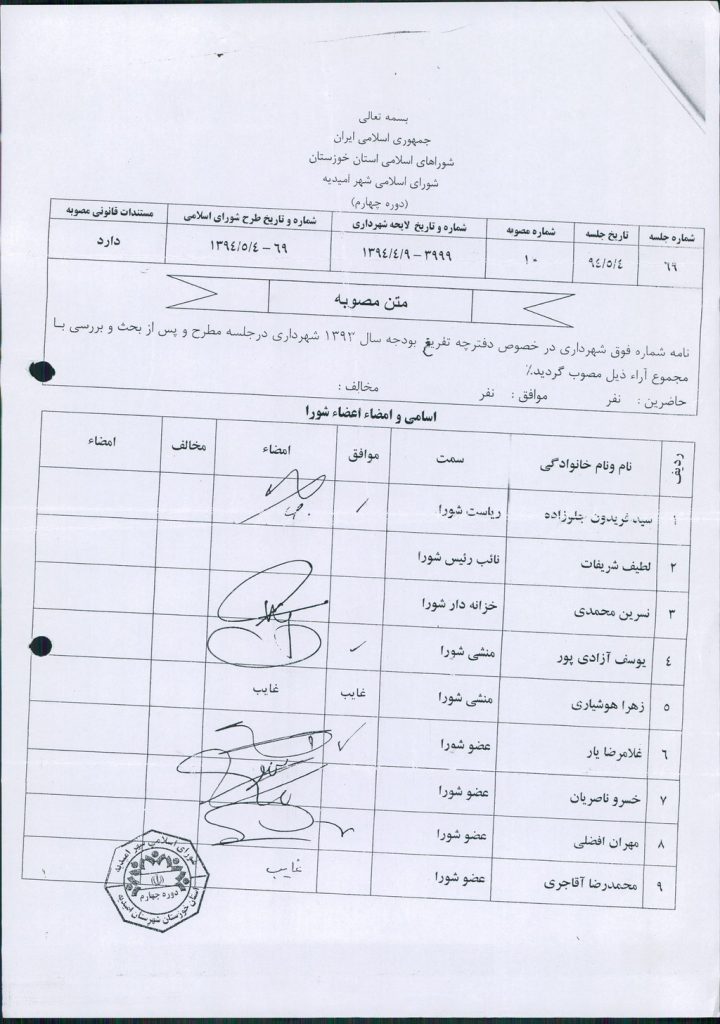 بسمه تعالی
جمهوری اسلامی ایران
شوراهای اسلامی استان خوزستان
شورای اسلامی شهر امیدیه
(دوره چهارم)
شماره جلسه تاریخ جلسه شماره مصوبه شماره و تاریخ لایحه شهرداری شماره و تاریخ طرح شورای اسلامی مستندات قانونی مصوبه
٦٩ ٩٤/٥/٤ ١٠ ٣٩٩٩ – ١٣٩٤/٤/٩ ٦٩ – ١٣٩٤/٥/٤ دارد
متن مصوبه
نامه شماره فوق شهرداری در خصوص دفترچه تفریغ بودجه سال ١٣٩٣ شهرداری درجلسه مطرح و پس از بحث و بررسی با
مجموع آراء ذیل مصوب گردید.٪
حاضرین : نفر موافق : نفر مخالف :
اسامی و امضاء اعضاء شورا
ردیف نام ونام خانوادگی سمت موافق امضاء مخالف امضاء
١ سید فریدون ریاست شورا
٢ لطیف شریفات نائب رئیس شورا
٣ نسرین محمدی خزانه دار شورا
٤ یوسف آزادی پور منشی شورا
٥ زهرا هوشیاری منشی شورا غایب غایب
٦ غلامرضا یار عضو شورا
٧ خسرو ناصریان عضو شورا
٨ مهران افضلی عضو شورا
٩ محمدرضا آقاجری عضو شورا غایب
١
شورای اسلامی شهر امیدیه
دوره چهارم
استان خوزستان شهرستان امیدیه